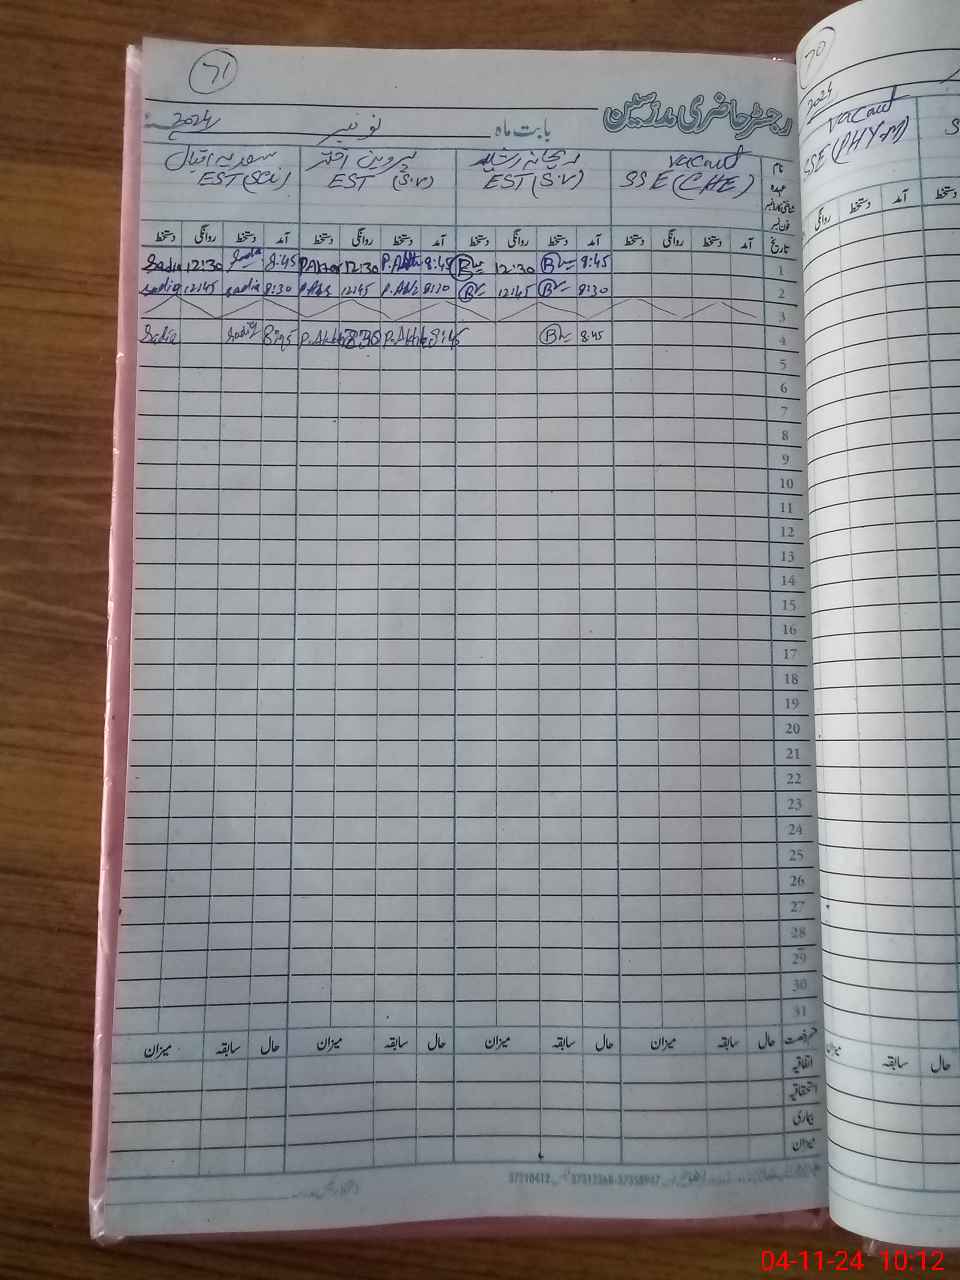 71
رجسٹر حاضری مدرسین
بابت ماہ نومبر 2024
نام vacant ریحانہ رشید پروین اختر سعدیہ اقبال
عہدہ SSE (CHE) EST (S.V) EST (S.V) EST (SCI)
شناختی کارڈ نمبر
فون نمبر
تاریخ آمد دستخط روانگی دستخط آمد دستخط روانگی دستخط آمد دستخط روانگی دستخط آمد دستخط روانگی دستخط
1 8:45 12:30 8:45 P.Akhtar 12:30 P.Akhtar 8:45 Sadia 12:30 Sadia
2 8:30 12:45 8:30 12:45 8:30 Sadia 12:45 Sadia
3
4 8:45 8:45 P.Akhtar P.Akhtar 8:45 Sadia Sadia
5
6
7
8
9
10
11
12
13
14
15
16
17
18
19
20
21
22
23
24
25
26
27
28
29
30
31
حال سابقہ میزان حال سابقہ میزان حال سابقہ میزان حال سابقہ میزان
اتفاقیہ
استحقاقیہ
بیماری
میزان
70
2024
vacant
SSE (PHY,M)
آمد دستخط روانگی
حال سابقہ میزان
04-11-24 10:12